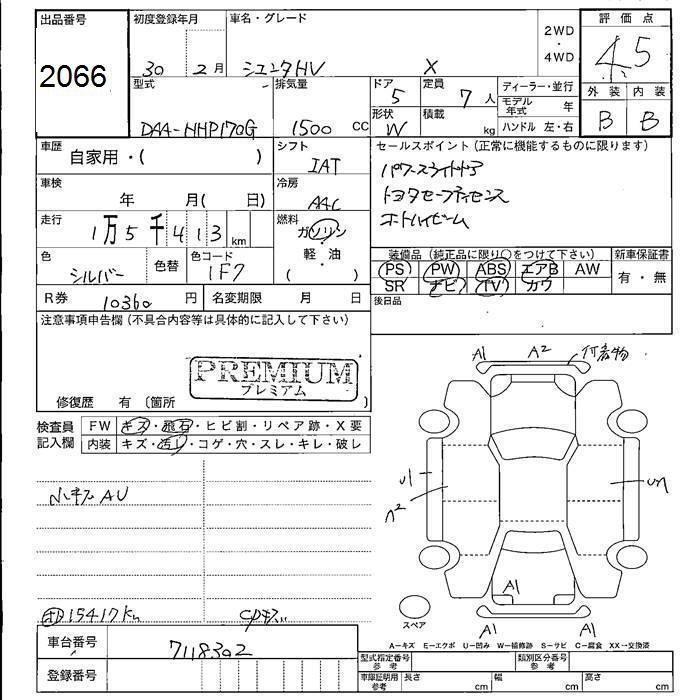 出品番号
2066
初度登録年月
30年 2月
車名・グレード
シエンタHV X
2WD
・
4WD
評価点
4.5
外装 内装
B B
型式
DAA-NHP170G
排気量
1500 CC
ドア
5
形状
W
定員
7人
積載
kg
ディーラー・並行
モデル年式 年
ハンドル 左・右
車歴
自家用・( )
シフト
IAT
車検
年 月( 日)
冷房
AAC
走行
1万5千413km
燃料
ガソリン
軽・油
( )
色
シルバー
色替
色コード
1F7
R券 10360円
名変期限 月 日
セールスポイント(正常に機能するものに限ります)
パワースライドドア
トヨタセーフティセンス
オートハイビーム
装備品(純正品に限り○をつけて下さい)
新車保証書
PS PW ABS エアB AW
SR ナビ TV カワ
有・無
後日品
注意事項申告欄(不具合内容等は具体的に記入して下さい)
PREMIUM
プレミアム
修復歴 有 〔箇所 〕
検査員記入欄
FW キズ・飛石・ヒビ割・リペア跡・X要
内装 キズ・汚れ・コゲ・穴・スレ・キレ・破レ
小キズ AU
15417km
車台番号
7118302
登録番号
A1 A2 付着物
A1
A1 A1
スペア
A=キズ E=エクボ U=凹み W=補修跡 S=サビ C=腐食 XX=交換済
型式指定番号 参考
類別区分番号 参考
車庫証明用 参考
長さ cm 幅 cm 高さ cm